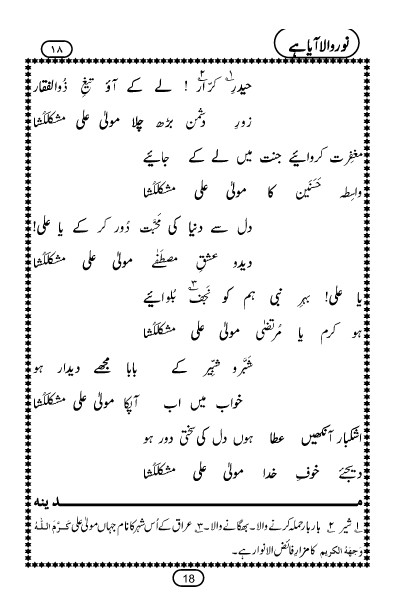 نور والا آیا ہے
۱۸
حیدرِ۱ کرّار۲ ! لے کے آؤ تیغِ ذُوالفقار
زورِ دشمن بڑھ چلا مولیٰ علی مشکلکُشا
مغفِرت کروائیے جنت میں لے کے جائیے
واسِطہ حَسَنَین کا مولیٰ علی مشکلکُشا
دل سے دنیا کی مَحَبَّت دُور کر کے یا علی!
دیدو عشقِ مصطَفٰے مولیٰ علی مشکلکُشا
یا علی! بہرِ نبی ہم کو نَجَف۳ بُلوائیے
ہو کرم یا مُرتَضٰی مولیٰ علی مشکلکُشا
شَبَّر و شَبِّیر کے بابا مجھے دیدار ہو
خواب میں اب آپکا مولیٰ علی مشکلکُشا
اشکبار آنکھیں عطا ہوں دل کی سختی دور ہو
دیجئے خوفِ خدا مولیٰ علی مشکلکُشا
مــدینہ
۱ شیر ۲ بار بار حملہ کرنے والا۔ بھگانے والا۔ ۳ عراق کے اُس شہر کا نام جہاں مولیٰ علی کَرَّمَ اللّٰهُ
وَجهَهُ الکریم کا مزارِ فائض الانوار ہے۔
18